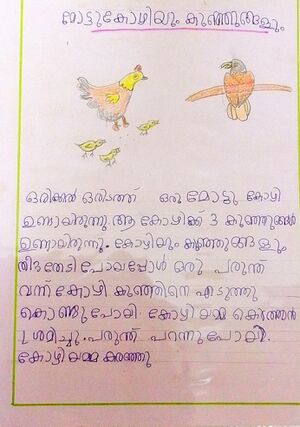 മൊട്ടുകോഴിയും കുഞ്ഞുങ്ങളും
ഒരിക്കൽ ഒരിടത്ത് ഒരു മോട്ടു കോഴി
ഉണ്ടായിരുന്നു. ആ കോഴിക്ക് 3 കുഞ്ഞുങ്ങൾ
ഉണ്ടായിരുന്നു. കോഴിയും കുഞ്ഞുങ്ങളും
തീറ്റതേടി പോയപ്പോൾ ഒരു പരുന്ത്
വന്ന് കോഴി കുഞ്ഞിനെ എടുത്തു
കൊണ്ടുപോയി. കോഴിയമ്മ കൊത്താൻ
ശ്രമിച്ചു. പരുന്ത് പറന്നുപോയി.
കോഴിയമ്മ കരഞ്ഞു